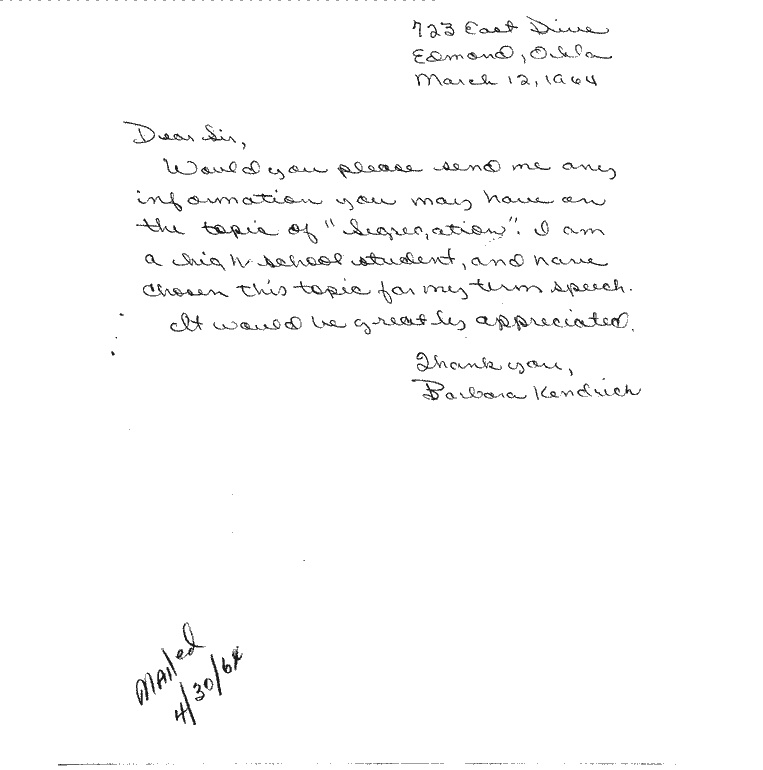 723 East Drive
Edmond, Okla
March 12, 1964
Dear Sir,
Would you please send me any
information you may have on
the topic of "Segregation". I am
a high school student, and have
chosen this topic for my term speech.
It would be greatly appreciated.
Thank you,
Barbara Kendrick
Mailed
4/30/64